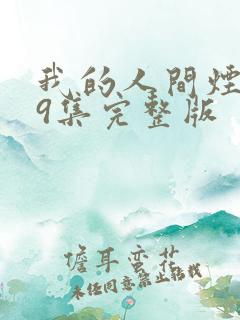 我的人間煙
9集完整版
儋耳蛮花
未经同意禁止转载